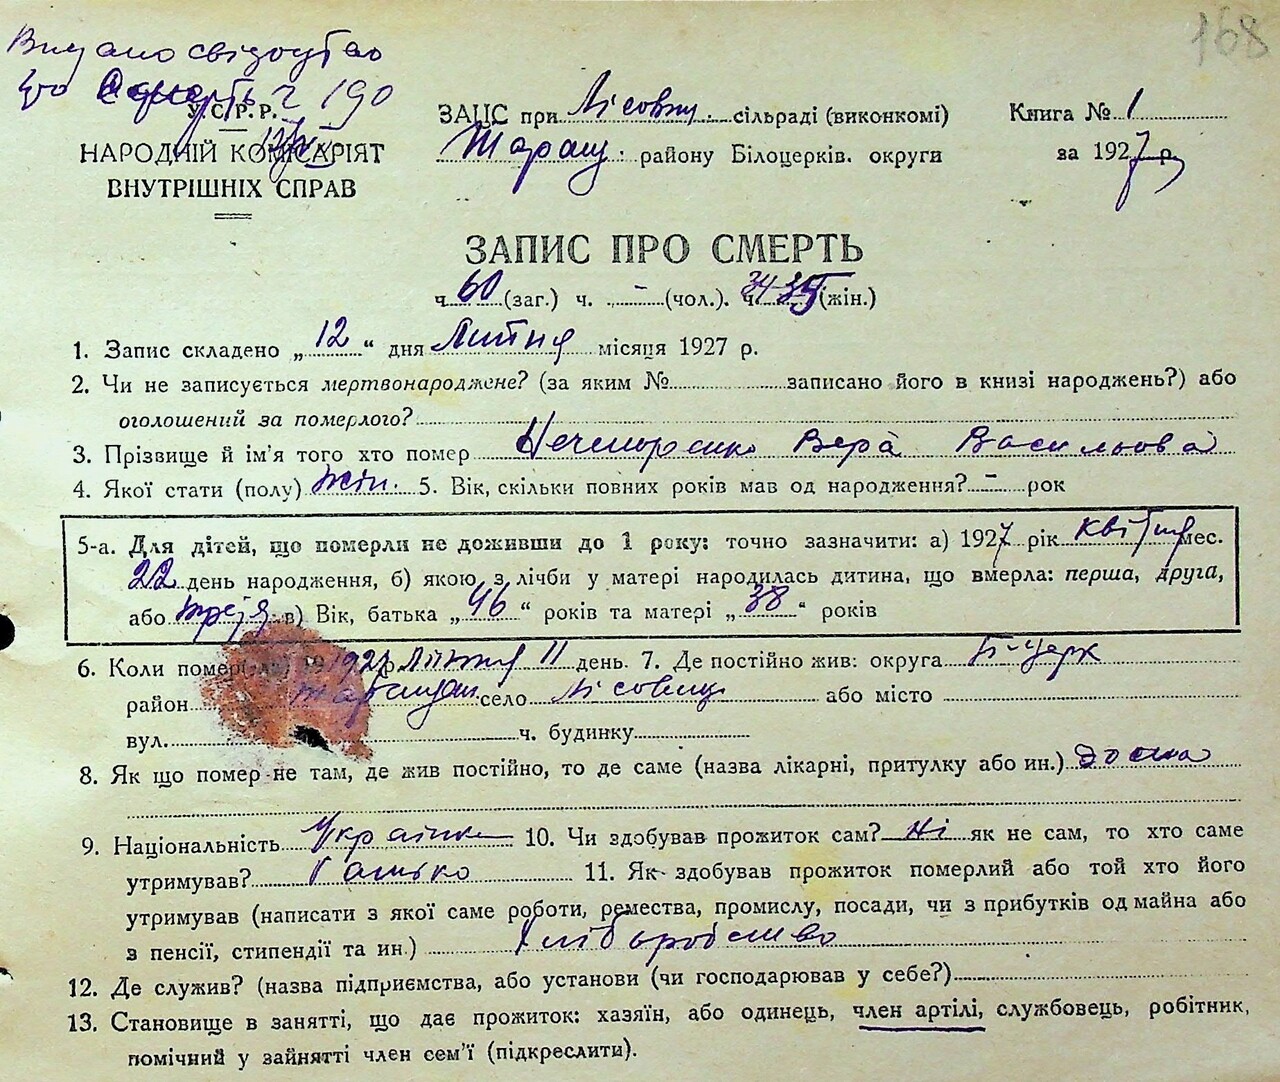 168
Видано свідоцтво
про смерть ч 190
У.С.Р.Р.
НАРОДНІЙ КОМІСАРІЯТ
ВНУТРІШНІХ СПРАВ
ЗАЦС при Лісовиц. сільраді (виконкомі)
Таращ. району Білоцерків. округи
Книга № 1
за 1927 р.
ЗАПИС ПРО СМЕРТЬ
ч. 60 (заг.) ч. - (чол.). ч. 35 (жін.)
1. Запис складено „12“ дня Липня місяця 1927 р.
2. Чи не записується мертвонароджене? (за яким № записано його в книзі народжень?) або
оголошений за померлого?
3. Прізвище й ім'я того хто помер Нечипоренко Вера Васильова
4. Якої стати (полу) жін. 5. Вік, скільки повних років мав од народження? - рок
5-а. Для дітей, що померли не доживши до 1 року: точно зазначити: а) 1927 рік квітня мес.
22 день народження, б) якою з лічби у матері народилась дитина, що вмерла: перша, друга,
або в) Вік, батька „46“ років та матері „38“ років
6. Коли помер(ла) 1927 р. Липня 11 день. 7. Де постійно жив: округа Б-Церк
район Таращан. село Лісовиц або місто
вул. ч. будинку
8. Як що помер не там, де жив постійно, то де саме (назва лікарні, притулку або ин.) дома
9. Національність Українка 10. Чи здобував прожиток сам? Ні як не сам, то хто саме
утримував? Батько 11. Як здобував прожиток померлий або той хто його
утримував (написати з якої саме роботи, ремества, промислу, посади, чи з прибутків од майна або
з пенсії, стипендії та ин.) Хліборобство
12. Де служив? (назва підприємства, або установи (чи господарював у себе?)
13. Становище в занятті, що дає прожиток: хазяїн, або одинець, член артілі, службовець, робітник,
помічний у зайнятті член сем'ї (підкреслити).